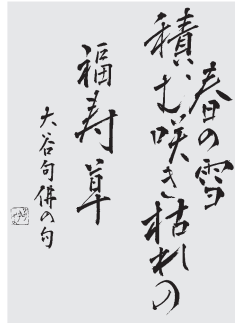 春の雪
積む咲き枯れの
福寿草
大谷句佛の句